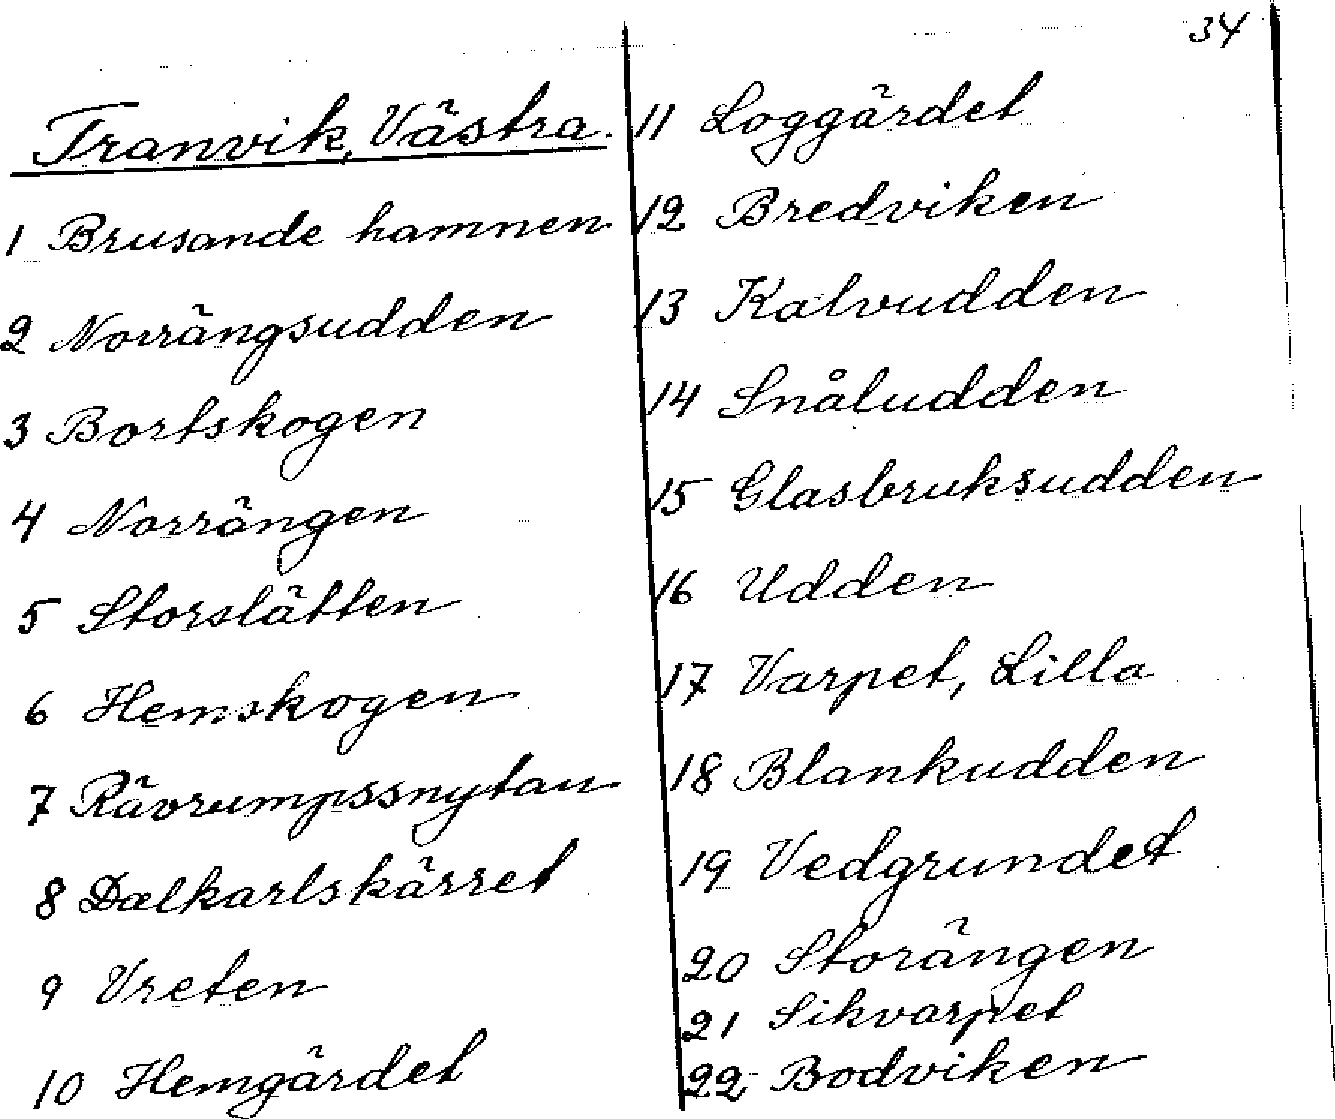 34
Tranvik, Västra.
1 Brusande hamnen
2 Norrängsudden
3 Bortskogen
4 Norrängen
5 Storslätten
6 Hemskogen
7 Rävrumpssnytan
8 Dalkarlskärret
9 Vreten
10 Hemgärdet
11 Loggärdet
12 Bredviken
13 Kalvudden
14 Snåludden
15 Glasbruksudden
16 Udden
17 Varpet, Lilla
18 Blankudden
19 Vedgrundet
20 Storängen
21 Sikvarpet
22 Bodviken